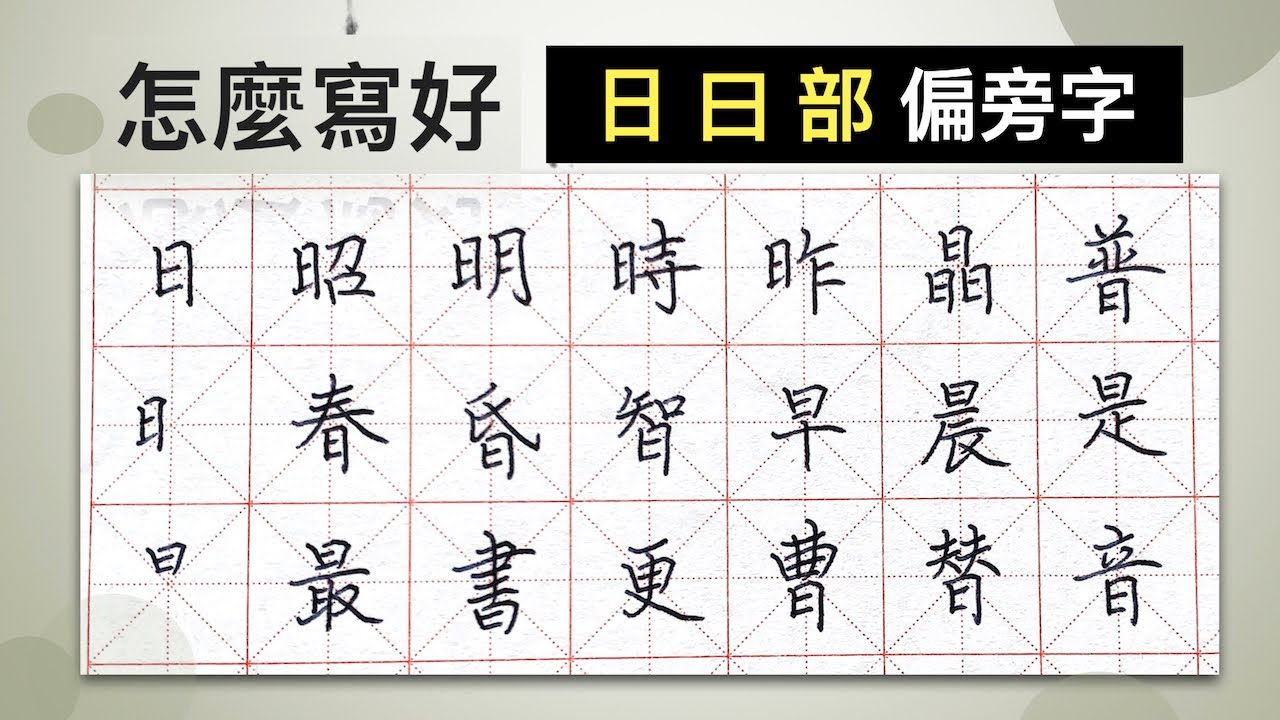 怎麼寫好 日 曰 部 偏旁字
日 昭 明 時 昨 晶 普
日 春 昏 智 早 晨 是
曰 最 書 更 曹 替 音